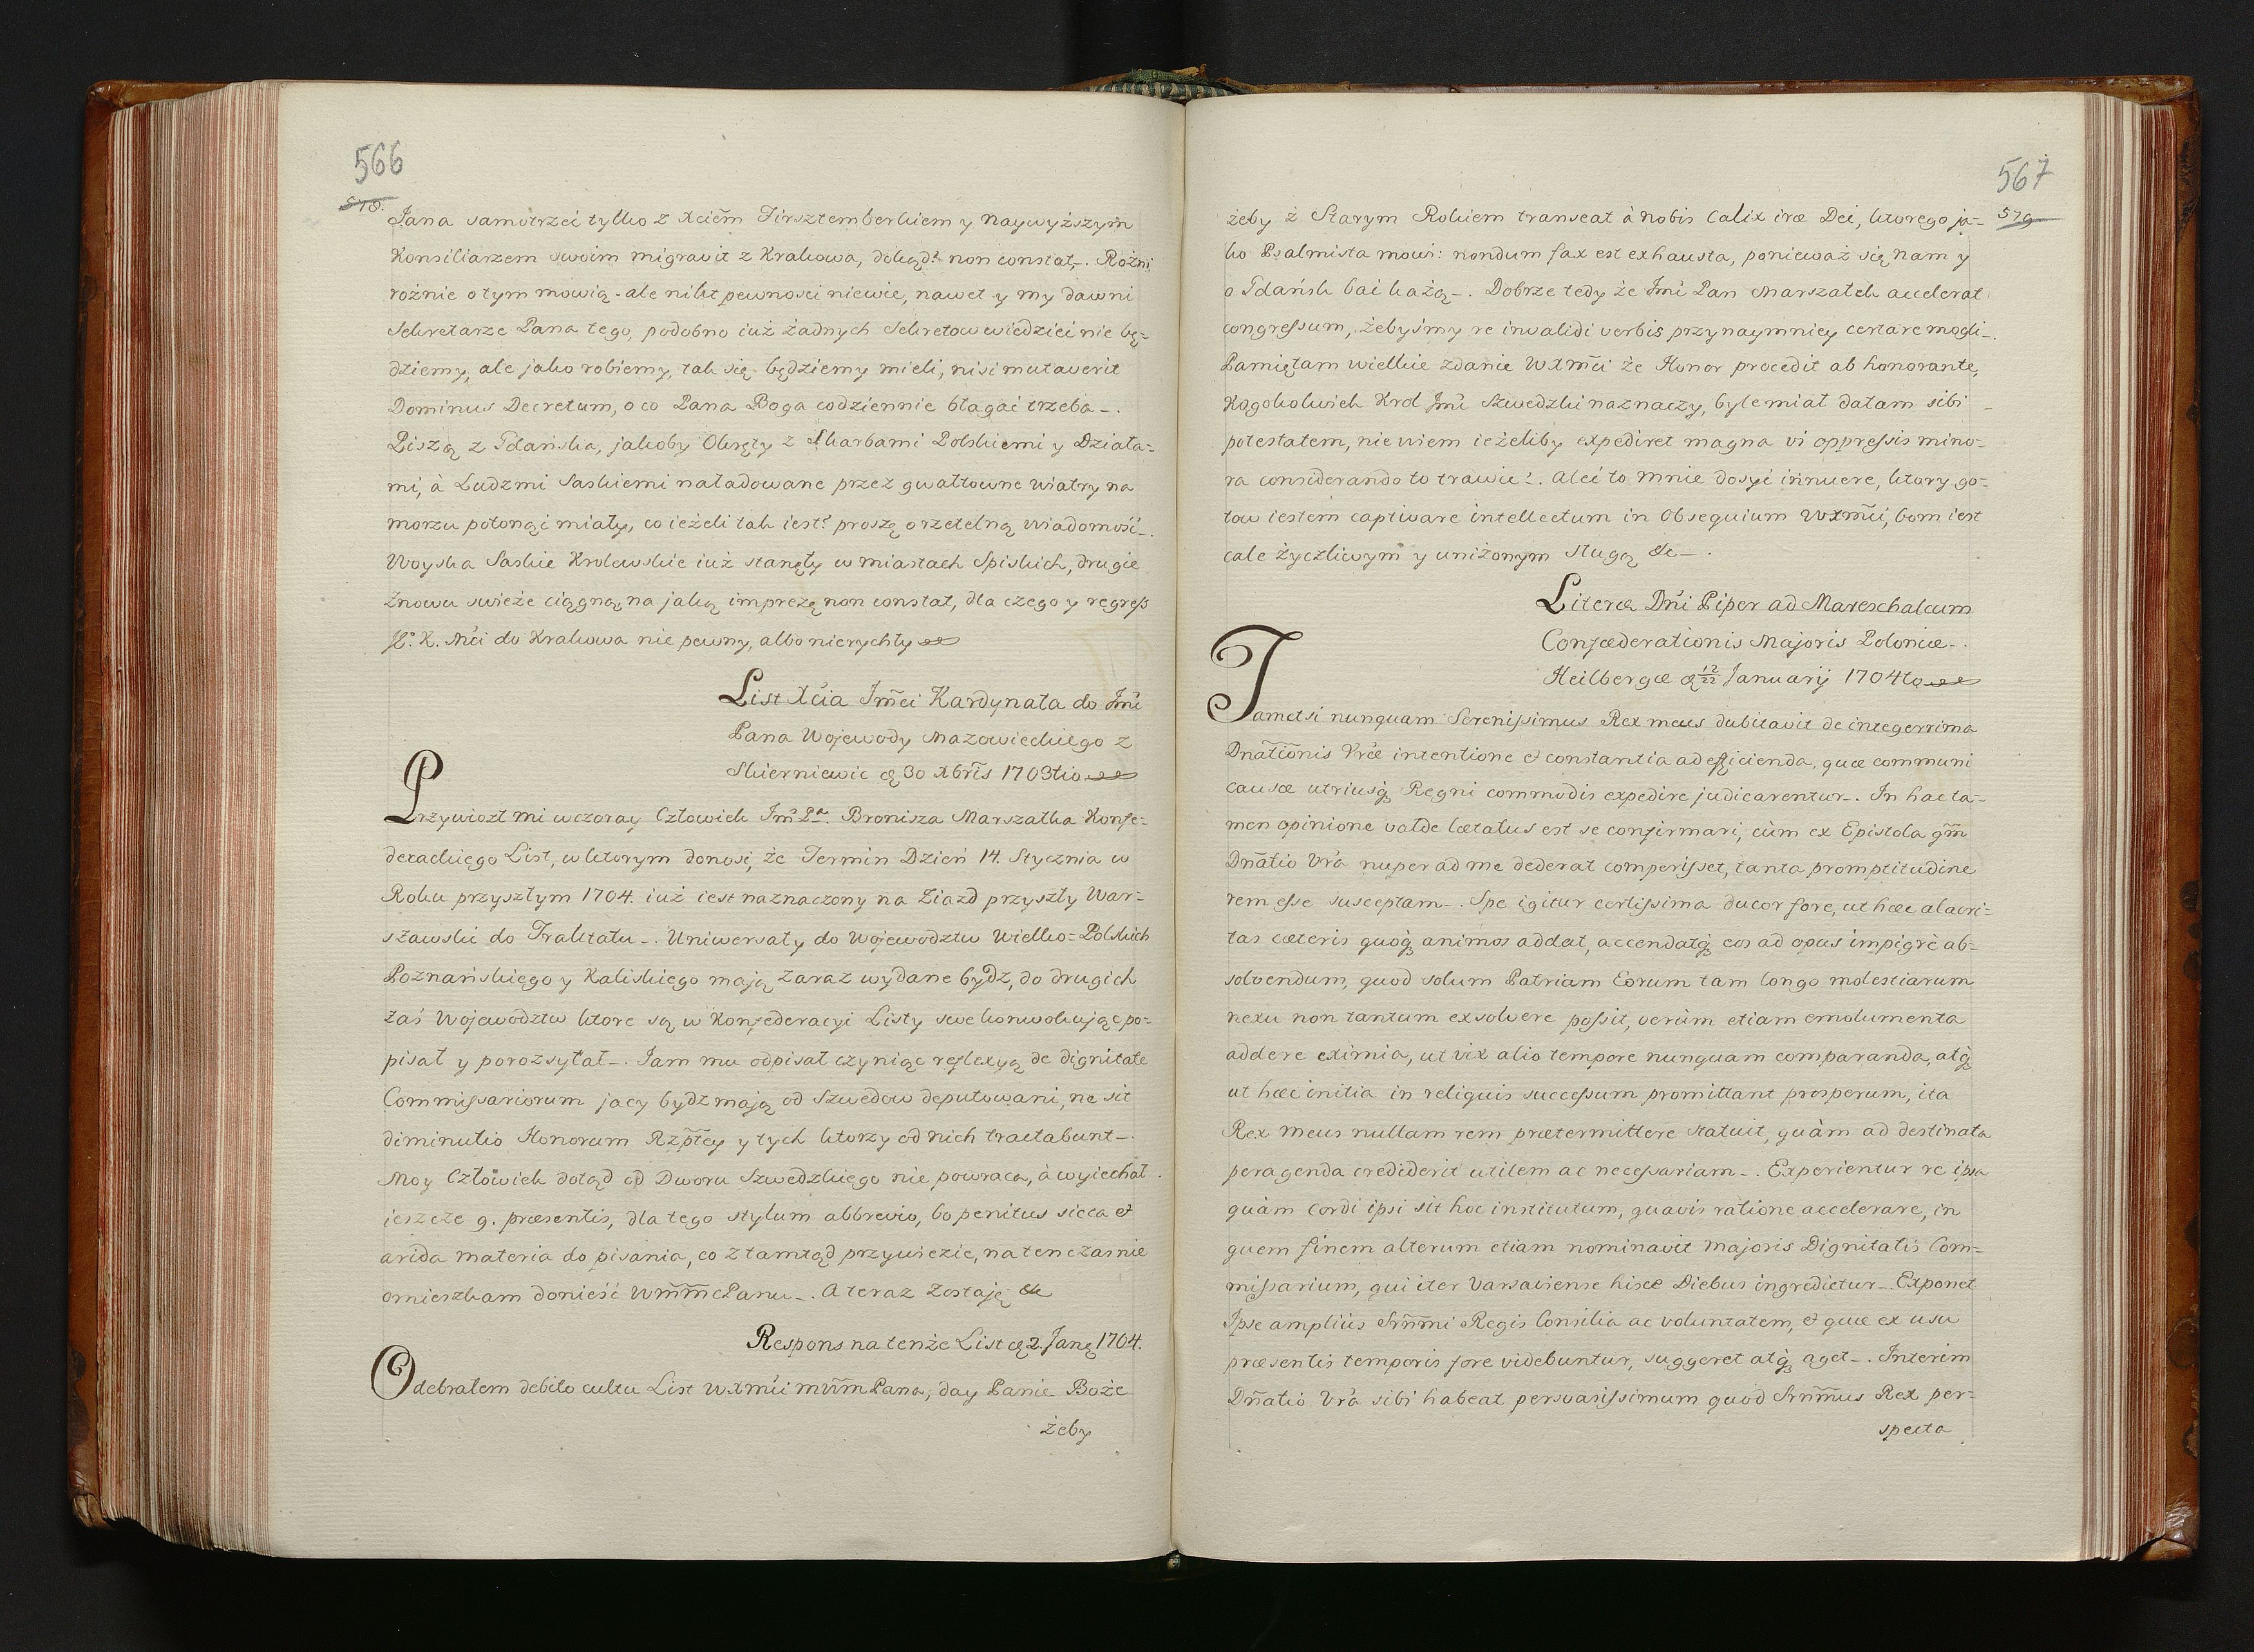 566
578.
Jana samotrzeć tylko z Xciem̃ Firsztemberkiem y naywyższym
Konsiliarzem swoim migravit z Krakowa, dokąd? non constat_. Rożni
rożnie o tym mowią. ale nikt pewnosci niewie, nawet y my dawni
Sekretarze Pana tego, podobno iuż żadnych Sekretow wiedzieć nie bę=
dziemy, ale jako robiemy, tak się będziemy mieli, nisi mutaverit
Dominus Decretum, o co Pana Boga codziennie błagać trzeba_.
Piszą z Gdańska, jakoby Okręty z Skarbami Polskiemi y Działa=
mi, à Ludzmi Saskiemi naładowane przez gwałtowne wiatry na
morzu potonąć miały, co ieżeli tak iest? proszę o rzetelną wiadomość_.
Woyska Saskie Krolewskie iuż stanęły w miastach Spiskich, drugie
znowu swieże ciągną, na jaką imprezę non constat, dla czego y regress
Jo. K. Mci do Krakowa nie pewny, albo nierychły
List Xcia Jm̃ci Kardynała do Jmci
Pana Wojewody Mazowieckiego z
Skierniewic ꝺ 30 Xbris 1703tio
Przywiozł mi wczoray Człowiek Jm Pa. Bronisza Marszałka Konfe=
derackiego List, w ktorym donosi, że Termin Dzień 14. Stycznia w
Roku przyszłym 1704. iuż iest naznaczony na Ziazd przyszły War=
szawski do Traktatu_. Uniwersały do Wojewodztw Wielko=Polskich
Poznańskiego y Kaliskiego mają zaraz wydane bydz, do drugich
zaś Wojewodztw ktore są w Konfederacyi Listy swe konwokujące po=
pisał y porozsyłał_. Jam mu odpisał czyniąc reflexyą de dignitate
Commissariorum jacy bydz mają od Szwedow deputowani, ne sit
diminutio Honorum Rzp̃tey y tych ktorzy od nich tractabunt_.
Moy Człowiek dotąd od Dworu Szwedzkiego nie powraca, à wyiechał
ieszcze 9. præsentis, dla tego stylum abbrevio, bo penitus sicca et
arida materia do pisania, co ztamtąd przywiezie, na ten czas nie
omieszkam donieść Wm̃m̃ć Panu_. A teraz zostaję &c
Respons na tenże List ꝺ 2. Jan. 1704.
Odebrałem debito cultu List WXmci mm̃m Pana, day Panie Boże
żeby
567
579
żeby z Starym Rokiem transeat à nobis Calix iræ Dei, ktorego ja=
ko Psalmista mowi: nondum fax est exhausta, ponieważ się nam y
o Gdańsk bać każą_. Dobrze tedy że Jmć Pan Marszałek accelerat
congressum, żebyśmy re invalidi verbis przynaymniey certare mogli_.
Pamiętam wielkie zdanie WXm̃ci że Honor procedit ab honorante,
Kogokolwiek Krol Jmć Szwedzki naznaczy, byle miał datam sibi
potestatem, nie wiem ieżeliby expediret magna vi oppressis mino=
ra considerando to trawić?. Aleć to mnie dosyć innuere, ktory go=
tow iestem captivare intellectum in Obsequium WXmci, bom iest
cale życzliwym y uniżonym sługą &c_.
Literæ Dni Piper ad Mareschalcum
Confæderationis Majoris Poloniæ_.
Heilbergæ ꝺ 12/22 Januarij 1704to
Tametsi nunquam Serenissimus Rex meus dubitavit de integerrima
Dnãtiõnis Vræ intentione et constantia ad efficienda, quæ communi
causæ utriusq́ Regni commodis expedire judicarentur_. In hac ta=
men opinione valde lætatus est se confirmari, cùm ex Epistola qm̃
Dnãtio Vra nuper ad me dederat comperisset, tanta promptitudine
rem esse susceptam_. Spe igitur certissima ducor fore, ut hæc alacri=
tas cæteris quoq́ animos addat, accendatq́ eos ad opus impigrè ab=
solvendum, quod solum Patriam Eorum tam longo molestiarum
nexu non tantum exsolvere possit, verùm etiam emolumenta
addere eximia, ut vix alio tempore nunquam comparanda, atq́
ut hæc initia in reliquis successum promittant prosperum, ita
Rex meus nullam rem prætermittere statuit, quàm ad destinata
peragenda crediderit utilem ac necessariam_. Experientur re ipsa
quàm cordi ipsi sit hoc institutum, quavis ratione accelerare, in
quem finem alterum etiam nominavit Majoris Dignitatis Com=
missarium, qui iter Varsaviense hisce Diebus ingredietur_. Exponet
Ipse ampliùs Srm̃mi Regis Consilia ac voluntatem, et quæ ex usu
præsentis temporis fore videbuntur, suggeret atq́ aget_. Interim
Dnãtio Vra sibi habeat persvasissimum quod Srm̃mus Rex per=
specta